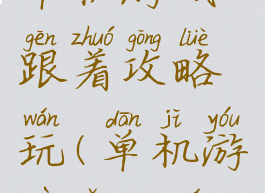 gēn zhuó gōng lüè
跟着攻略
wán dān jī yóu
玩(单机游